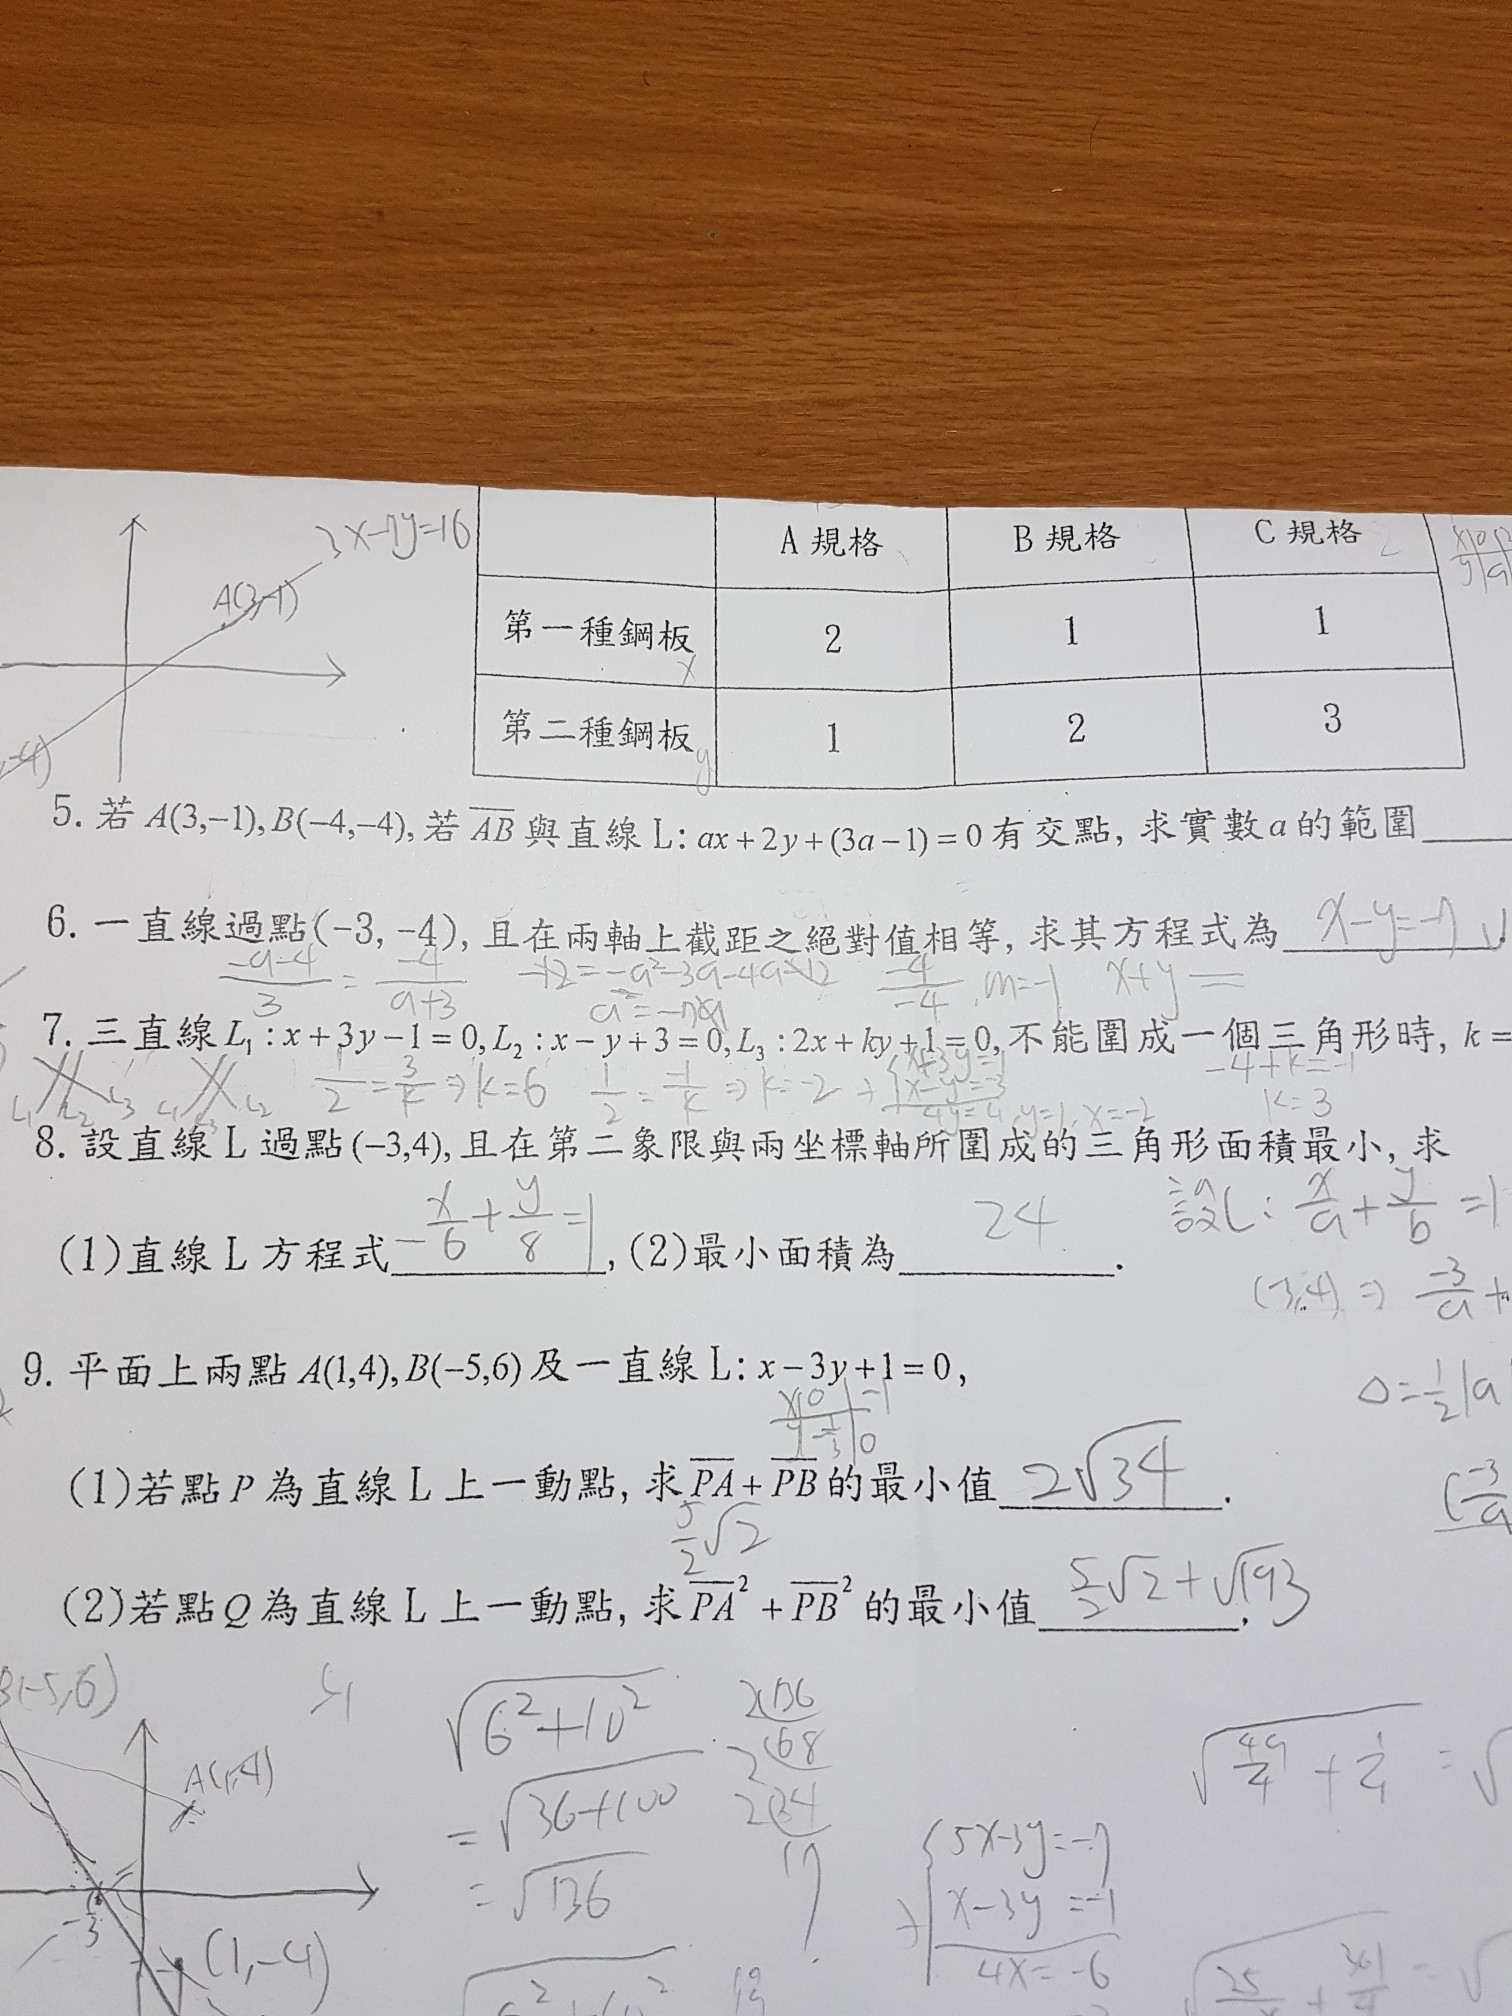 3x-7y=16
A 規格 B 規格 C 規格
A(3,-1)
第一種鋼板 2 1 1
x
第二種鋼板 1 2 3
y
-4)
5. 若 A(3,-1), B(-4,-4), 若 AB 與直線 L: ax+2y+(3a-1)=0 有交點, 求實數 a 的範圍
6. 一直線過點(-3, -4), 且在兩軸上截距之絕對值相等, 求其方程式為 x-y=-7
-a-4/3 = -4/a+3 -12=-a²-3a-4a-12 -4/-4, m=-1 x+y=
7. 三直線 L₁:x+3y-1=0, L₂:x-y+3=0, L₃:2x+ky+1=0, 不能圍成一個三角形時, k=
L₁ L₂ L₃ L₁ L₃ L₂ 1/2=3/k⇒k=6 1/2=-1/k⇒k=-2 x+3y=1 -4+k=-1
x-y=-3
4y=4, y=1, x=-2 k=3
8. 設直線 L 過點(-3,4), 且在第二象限與兩坐標軸所圍成的三角形面積最小, 求
設L: x/a+y/b=1
(1)直線 L 方程式 -x/6+y/8=1, (2)最小面積為 24.
(-3,4)⇒ -3/a+
9. 平面上兩點 A(1,4), B(-5,6) 及一直線 L: x-3y+1=0,
x|0|-1
y|-1/3|0
(1)若點 P 為直線 L 上一動點, 求 PA+PB 的最小值 2√34.
5/2√2
(2)若點 Q 為直線 L 上一動點, 求 PA²+PB² 的最小值 5/2√2+√193.
B(-5,6)
√6²+10² 2136
268
√49/4+1/4=√
A(1,4)
=√36+100 234
17
5x-3y=-7
=√136 x-3y=-1
-1/3
(1,-4) 4x=-6